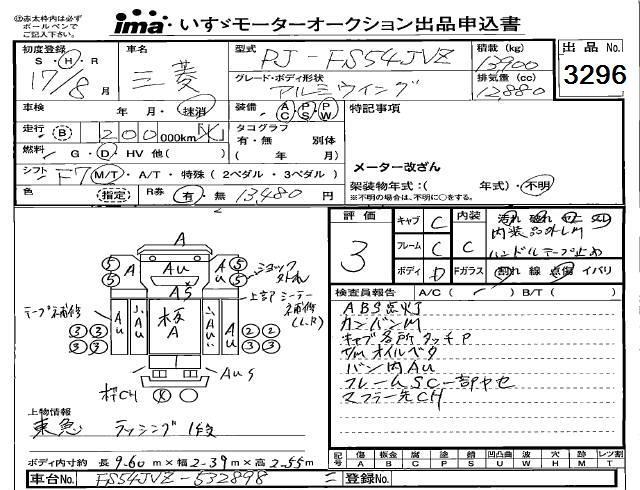 ⑪赤太枠内は必ず
ボールペンで
ご記入下さい。
ima いすゞモーターオークション出品申込書
初度登録
S・H・R
17/8月
車名
三菱
型式
PJ-FS54JVZ
グレード・ボディ形状
アルミウイング
積載(kg)
13900
排気量(cc)
12,880
出品No.
3296
車検 年 月・抹消
装備 AC PS PW
特記事項
走行 B 200 000km
タコグラフ
有・無 別体
( 年 月)
燃料 G・D・HV 他( )
メーター改ざん
シフト F7 M/T・A/T・特殊(2ペダル・3ペダル)
架装物年式:( 年式)・不明
※不明の場合は、不明に○をする。
色 (指定) R券 有・無 13,480円
評価
3
キャブ C
フレーム C
ボディ D
内装
C
Fガラス
汚れ 破れ
内装品外しM
ハンドルテープ止め
割れ 線 点傷 イバリ
検査員報告 A/C( ) B/T( )
ABS忘灯
カンバンM
キャブ各所タッチP
T/Mオイルベタ
バン内AU
フレームSC一部ヤセ
マフラー先CH
A
AU
板
A
AU
テープ補修
上部シーラー
補修
(L.R)
AU5
上物情報
東急 ラッシング 1段
ボディ内寸約 長 9.60 m × 幅 2.39 m × 高 2.55 m
記号 傷 A 板金 B 腐 C 塗 P 錆 S 凹凸曲 U 波 W 穴 H 跡 M レツ割 T
車台No. FS54JVZ-532898
登録No.